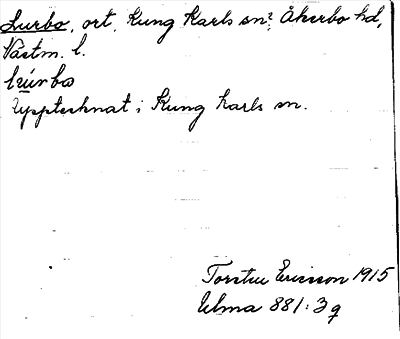 Lurbo, ort, Kung Karls sn?, Åkerbo hd,
Västm. l.
lúrbo
Upptecknat i Kung Karls sn.
Torsten Ericsson 1915
Ulma 881:3 g